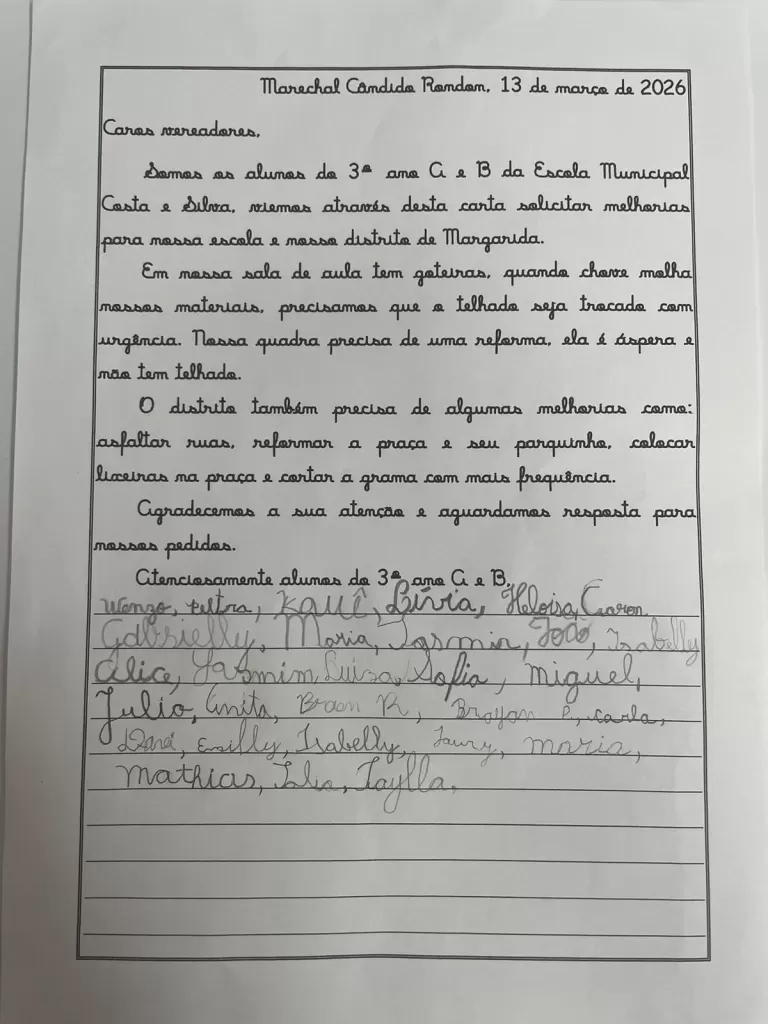 Marechal Cândido Rondon, 13 de março de 2026
Caros vereadores,
Somos os alunos do 3º ano A e B da Escola Municipal
Costa e Silva, viemos através desta carta solicitar melhorias
para nossa escola e nosso distrito de Margarida.
Em nossa sala de aula tem goteiras, quando chove molha
nossos materiais, precisamos que o telhado seja trocado com
urgência. Nossa quadra precisa de uma reforma, ela é áspera e
não tem telhado.
O distrito também precisa de algumas melhorias como:
asfaltar ruas, reformar a praça e seu parquinho, colocar
lixeiras na praça e cortar a grama com mais frequência.
Agradecemos a sua atenção e aguardamos resposta para
nossos pedidos.
Atenciosamente alunos do 3º ano A e B.
Kauê, Lívia, Heloisa,
Gabrielly, Maria, Iasmin, João, Isabelly
Alice, Yasmim, Luiza, Sofia, Miguel,
Julio, Anita, R., P., Carla,
Isabelly, maria,
Mathias, Taylla.